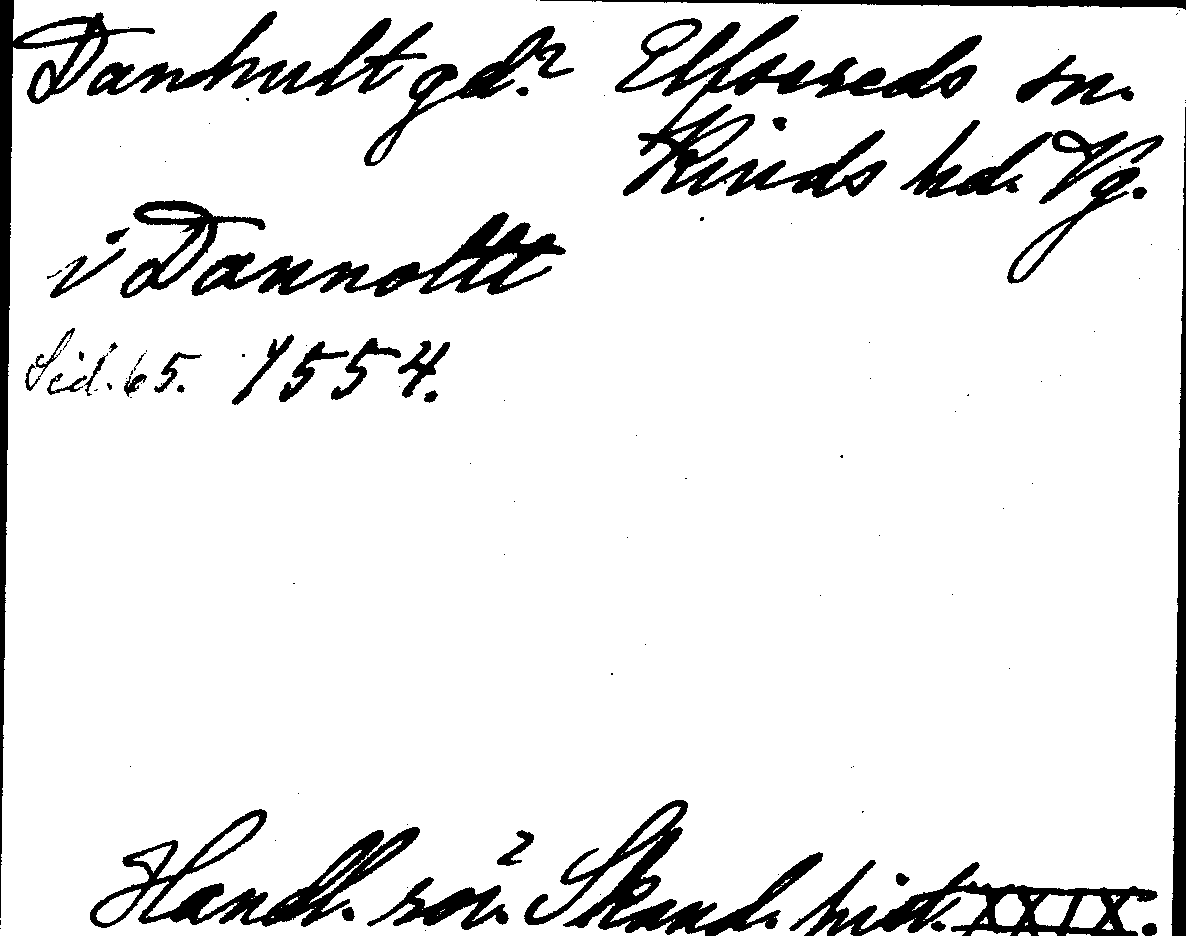 Danhult gd? Elfsereds sn.
Kinds hd. Vg.
i Dannoltt
Sid. 65. 1554.
Handl. rör? Skand. hist. XXIX.